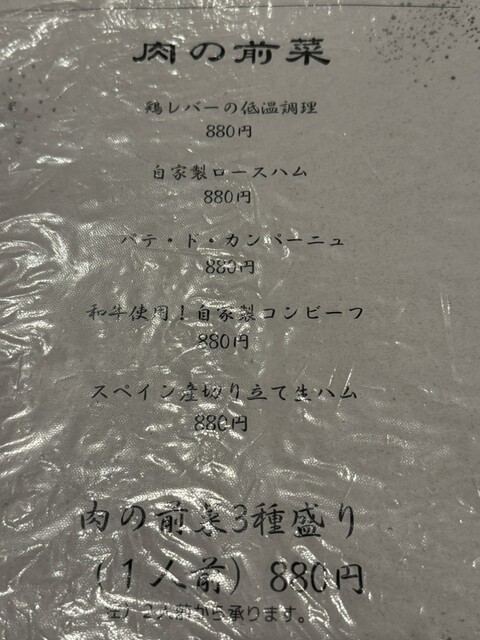 肉の前菜
鶏レバーの低温調理
880円
自家製ロースハム
880円
パテ・ド・カンパーニュ
880円
和牛使用！自家製コンビーフ
880円
スペイン産切り立て生ハム
880円
肉の前菜3種盛り
（１人前）880円
注）2人前から承ります。